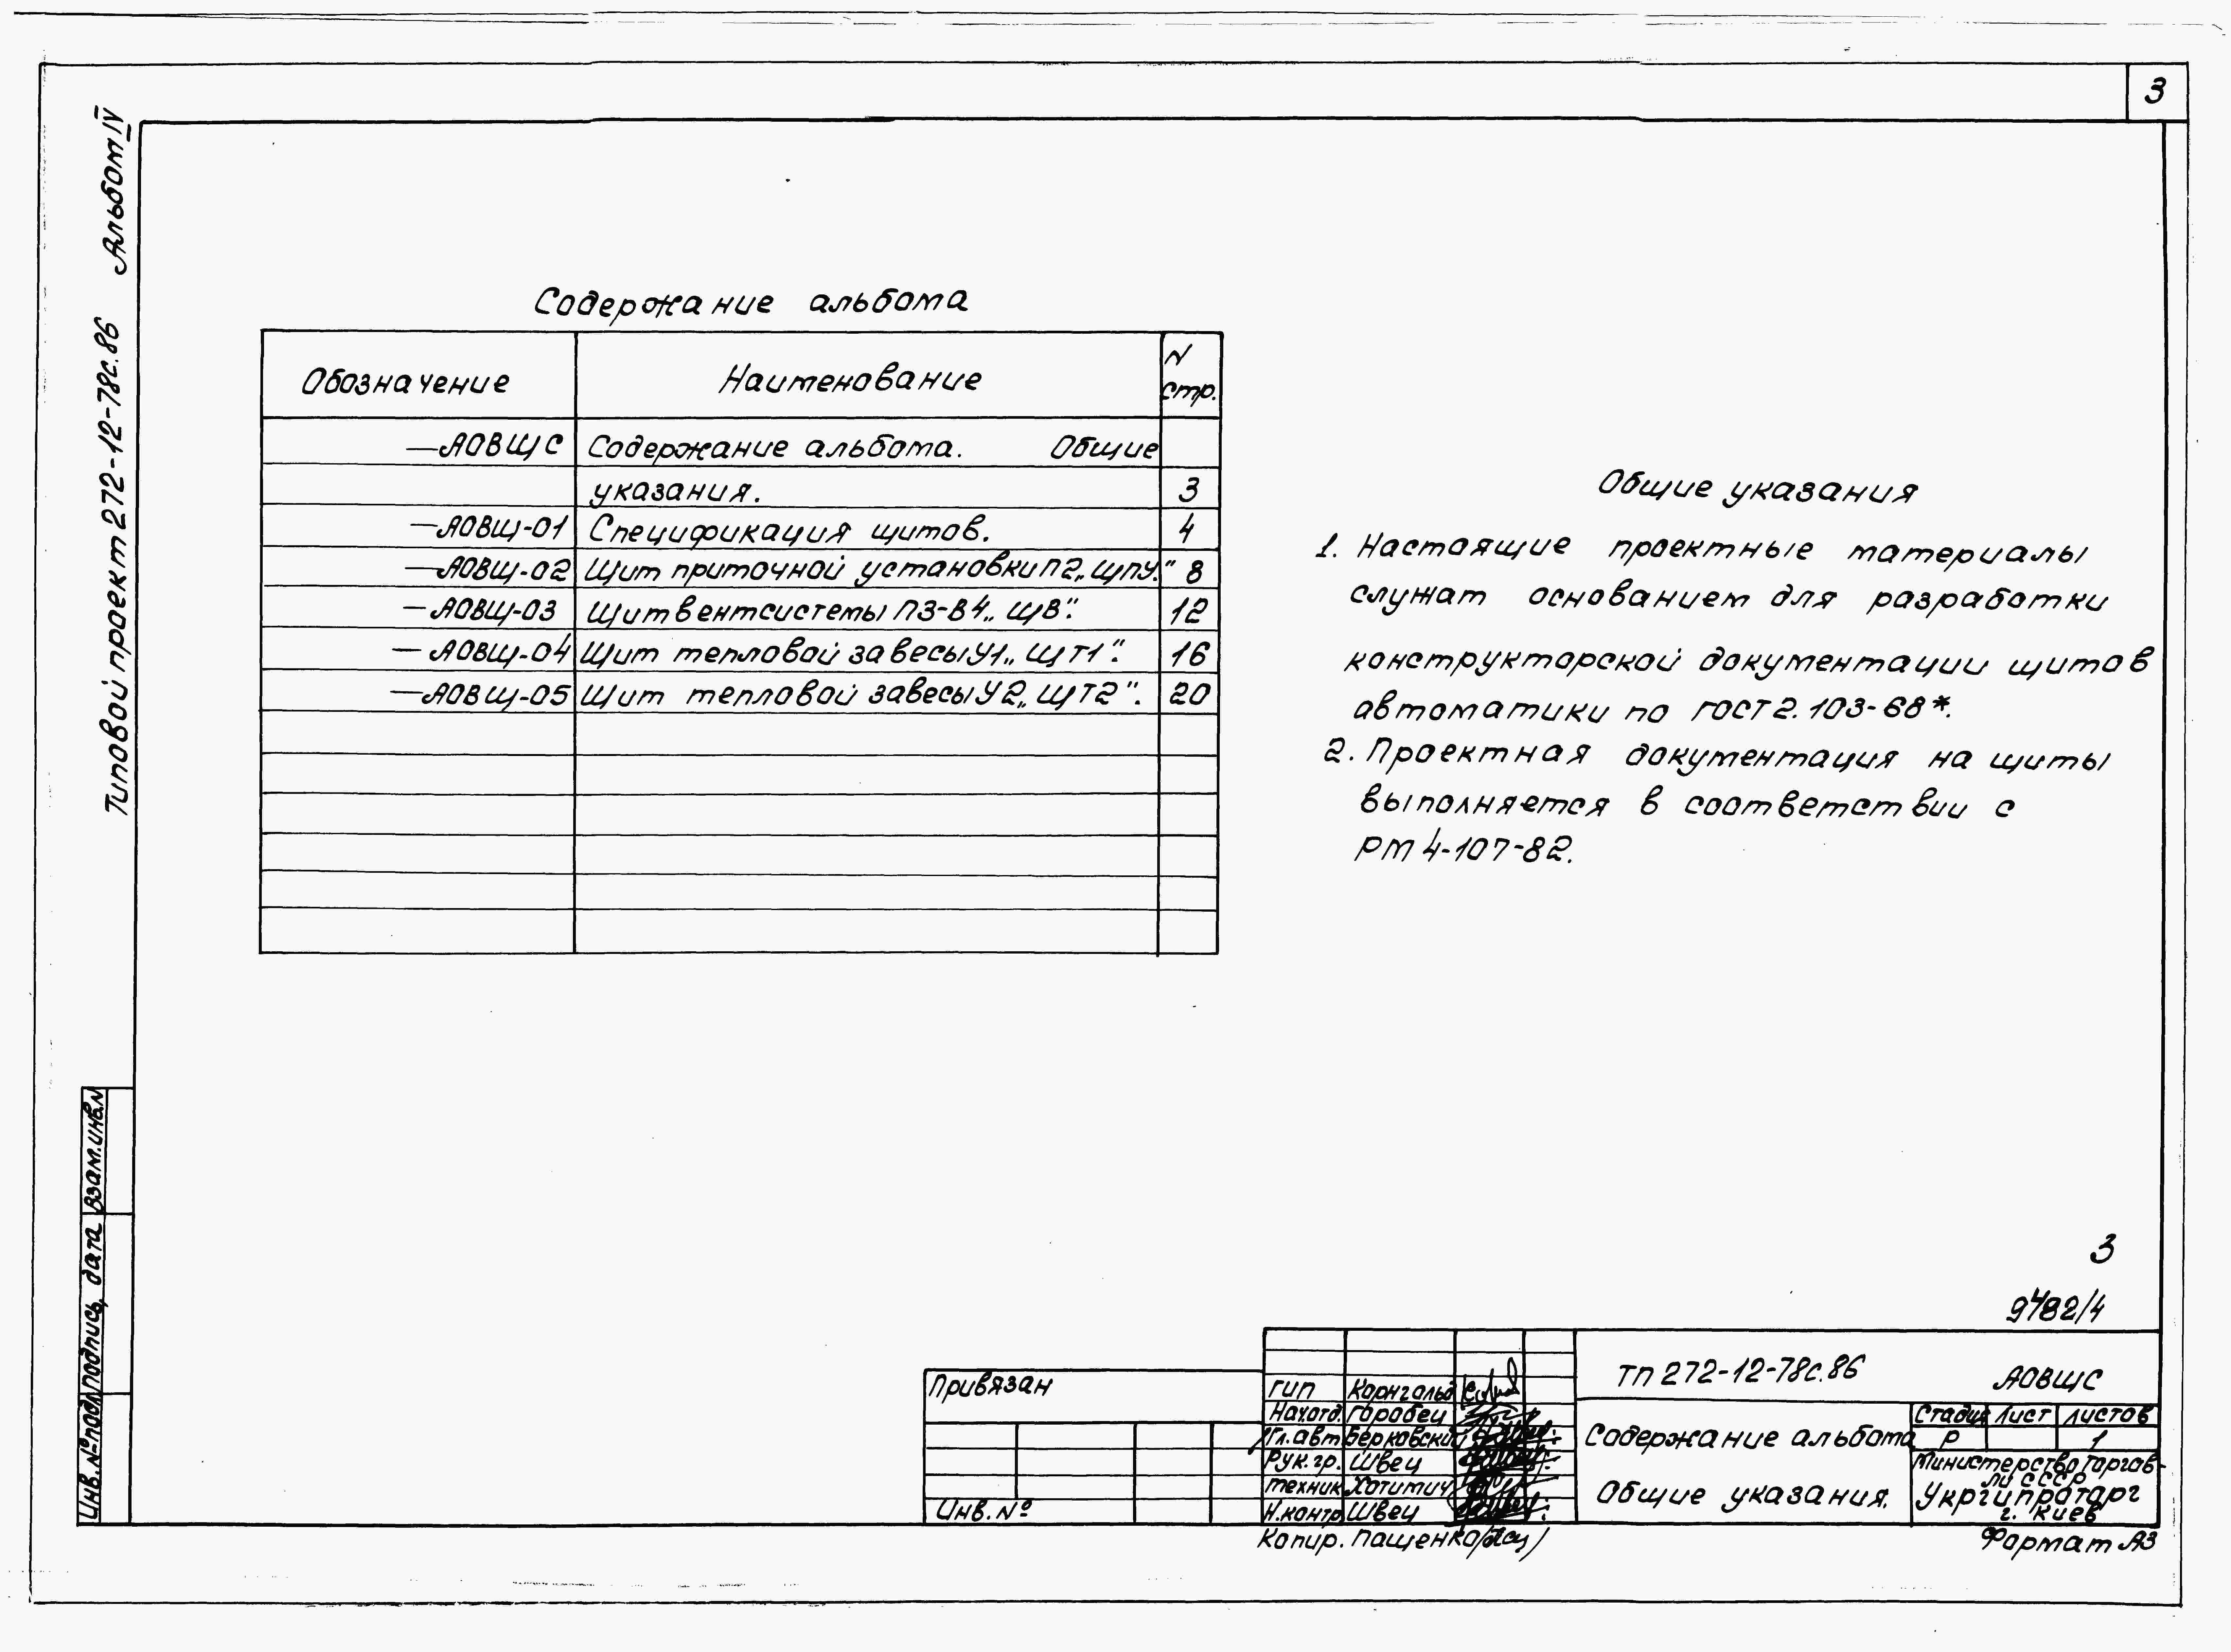 3
Типовой проект 272-12-78с.86 Альбом IV
Содержание альбома
Обозначение Наименование N стр.
—АОВЩС Содержание альбома. Общие
указания. 3
—АОВЩ-01 Спецификация щитов. 4
—АОВЩ-02 Щит приточной установки П2 „ЩПУ." 8
—АОВЩ-03 Щит вентсистемы П3-В4 „ЩВ". 12
—АОВЩ-04 Щит тепловой завесы У1 „ЩТ1". 16
—АОВЩ-05 Щит тепловой завесы У2 „ЩТ2". 20
Общие указания
1. Настоящие проектные материалы
служат основанием для разработки
конструкторской документации щитов
автоматики по ГОСТ 2.103-68*.
2. Проектная документация на щиты
выполняется в соответствии с
РМ 4-107-82.
Взам.инв.N
Подпись, дата
Инв.№подл
3
9482/4
Привязан
Инв.№
ГИП Корнгольд
Нач.отд. Горобец
Гл.авт. Берковский
Рук.гр. Швец
техник Хотимич
Н.контр. Швец
ТП 272-12-78с.86 АОВЩС
Содержание альбома
Общие указания.
Стадия Лист Листов
Р 1
Министерство торгов-
ли СССР
Укргипроторг
г. Киев
Копир. Пащенко
Формат А3